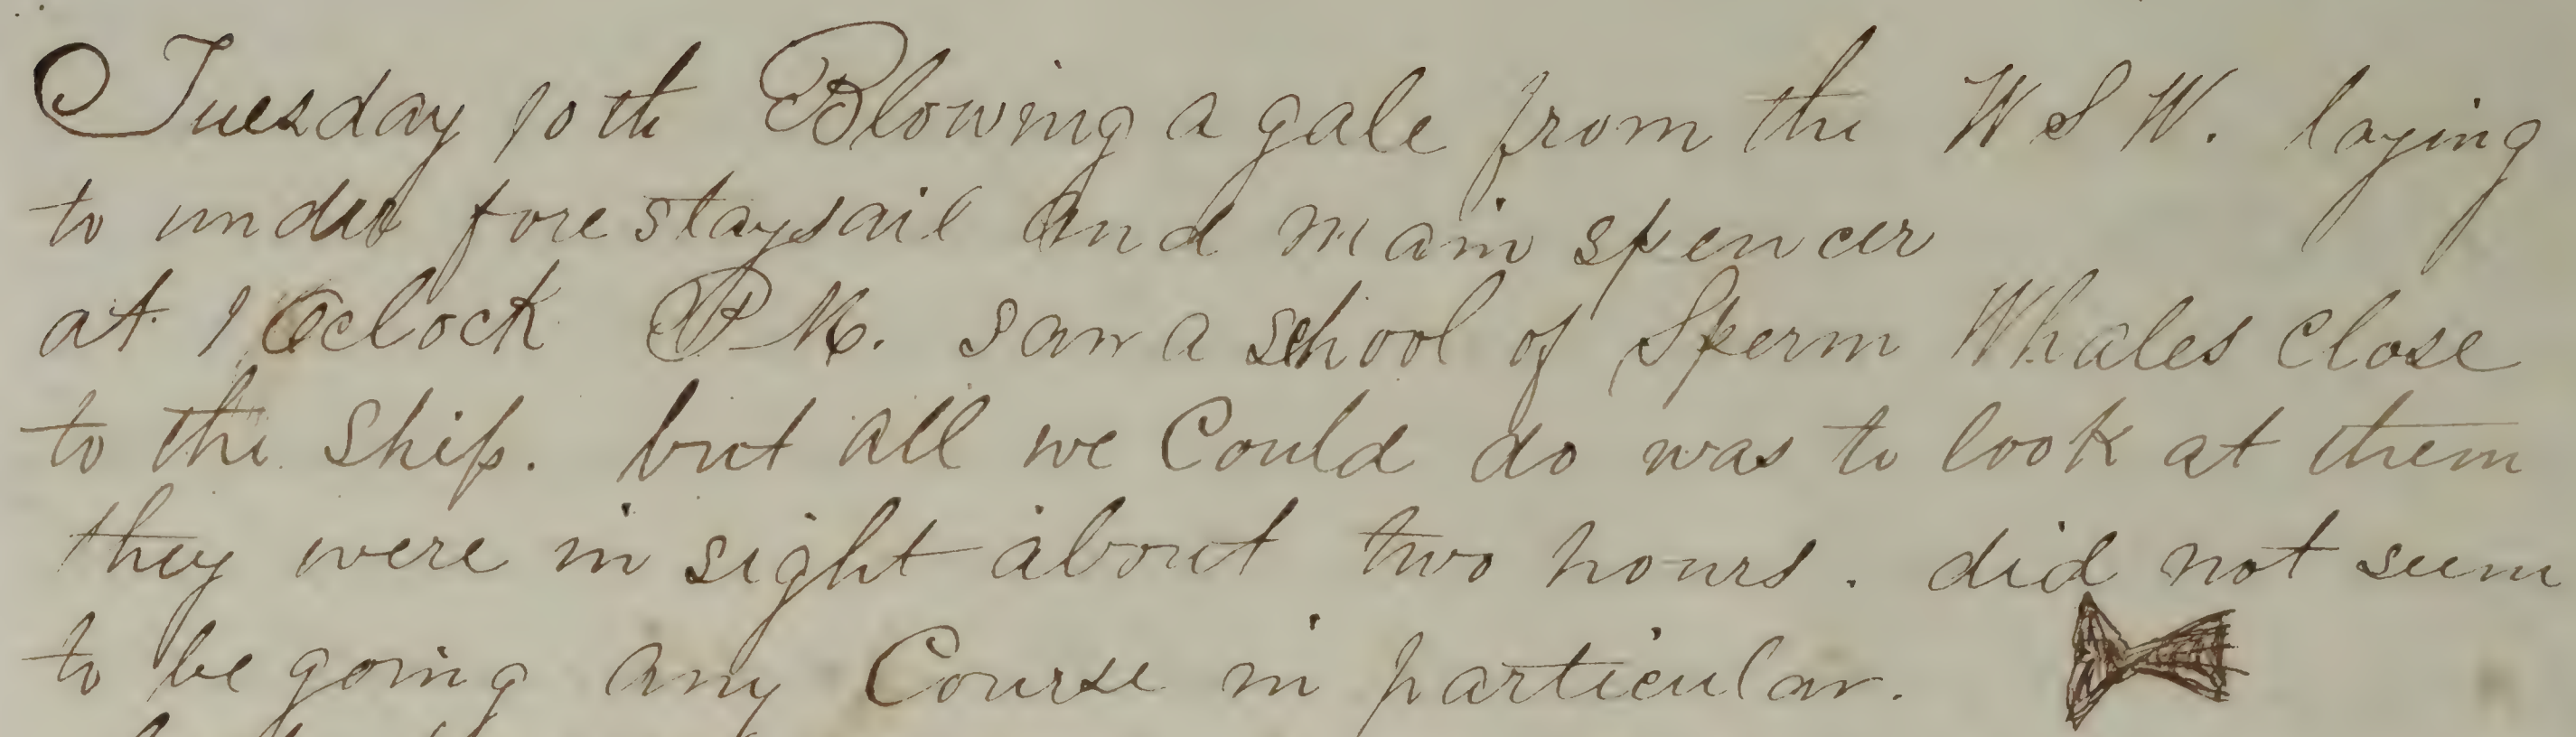 Tuesday 10th Blowing a gale from the W S W. laying
to under fore staysail and main spencer
at 1 Oclock P M. saw a school of Sperm Whales Close
to the Ship. but all we Could do was to look at them
they were in sight about two hours. did not seem
to be going any Course in particular.